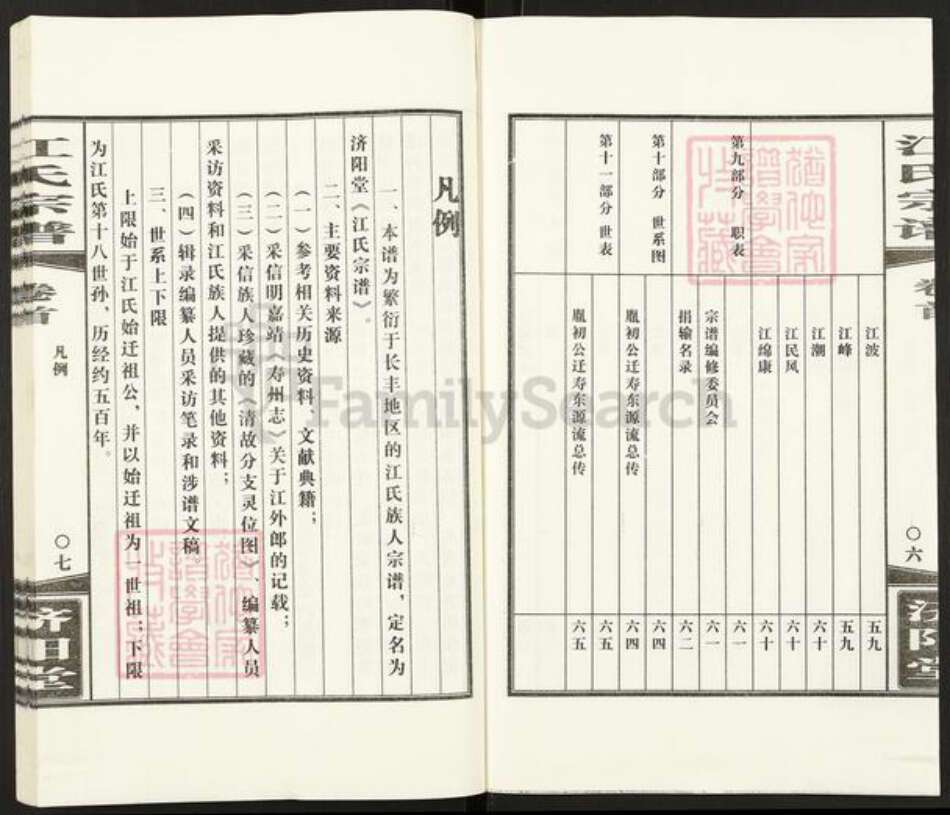 江氏宗谱
卷首
〇六
济阳堂
江波 五九
江峰 五九
江潮 六十
江民风 六十
江绵康 六十
第九部分 职表 六一
宗谱编修委员会 六一
捐输名录 六二
第十部分 世系图 六四
胤初公迁寿东源流总传 六四
第十一部分 世表 六五
胤初公迁寿东源流总传 六五
凡例
一、本谱为繁衍于长丰地区的江氏族人宗谱，定名为
济阳堂《江氏宗谱》。
二、主要资料来源
（一）参考相关历史资料、文献典籍；
（二）采信明嘉靖《寿州志》关于江外郎的记载；
（三）采信族人珍藏的《清故分支灵位图》、编纂人员
采访资料和江氏族人提供的其他资料；
（四）辑录编纂人员采访笔录和涉谱文稿
三、世系上下限
上限始于江氏始迁祖公，并以始迁祖为一世祖；下限
为江氏第十八世孙，历经约五百年。
江氏宗谱
卷首
凡例
〇七
济阳堂
FamilySearch